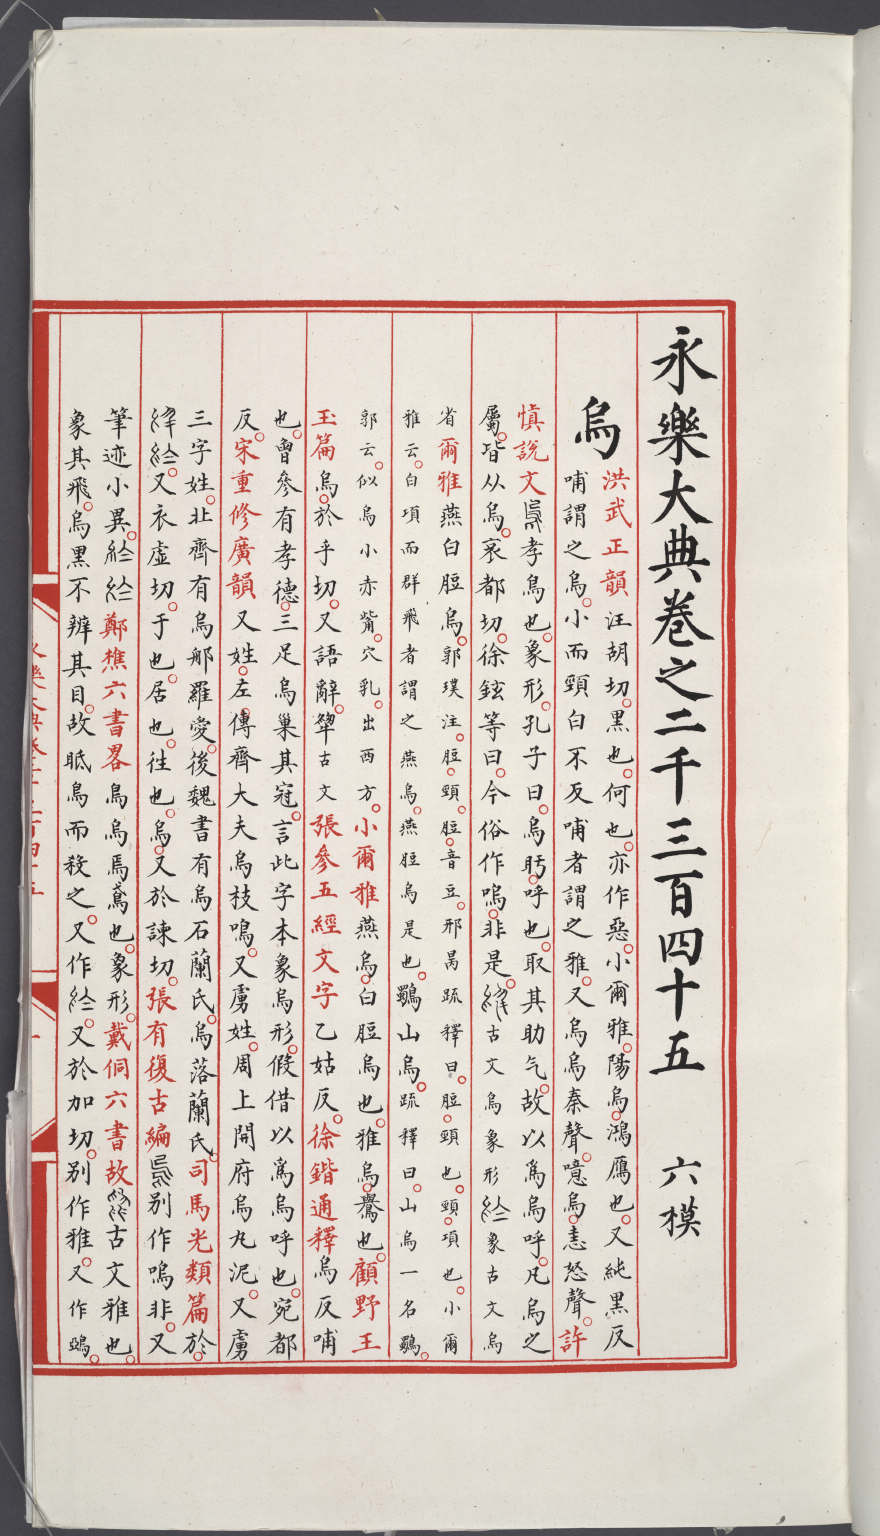 永樂大典卷之二千三百四十五　六模
烏
洪武正韻汪胡切黑也何也亦作惡小爾雅陽烏鴻鴈也又純黑反
哺謂之烏小而頸白不反哺者謂之雅又烏烏秦聲噫烏恚怒聲許
慎說文孝鳥也象形孔子曰烏盻呼也取其助气故以為烏呼凡烏之
屬皆从烏哀都切徐鉉等曰今俗作嗚非是古文烏象形象古文烏
省爾雅燕白脰烏郭璞注脰頸脰音豆邢昺疏釋曰脰頸也頸項也小爾
雅云白項而群飛者謂之燕烏燕脰烏是也鸀山烏疏釋曰山烏一名鸀
郭云似烏小赤觜穴乳出西方小爾雅燕烏白脰烏也雅烏鸒也顧野王
玉篇烏於乎切又語辭古文張參五經文字乙姑反徐鍇通釋烏反哺
也曾參有孝德三足烏巢其冠言此字本象烏形假借以為烏呼也宛都
反宋重修廣韻又姓左傳齊大夫烏枝鳴又虜姓周上開府烏丸泥又虜
三字姓北齊有烏那羅愛後魏書有烏石蘭氏烏落蘭氏司馬光類篇於
又衣虛切于也居也往也烏又於諫切張有復古編別作嗚非又
筆迹小異鄭樵六書畧鳥烏焉鳶也象形戴侗六書故古文雅也
象其飛烏黑不辨其目故眂鳥而殺之又作又於加切別作雅又作鵶